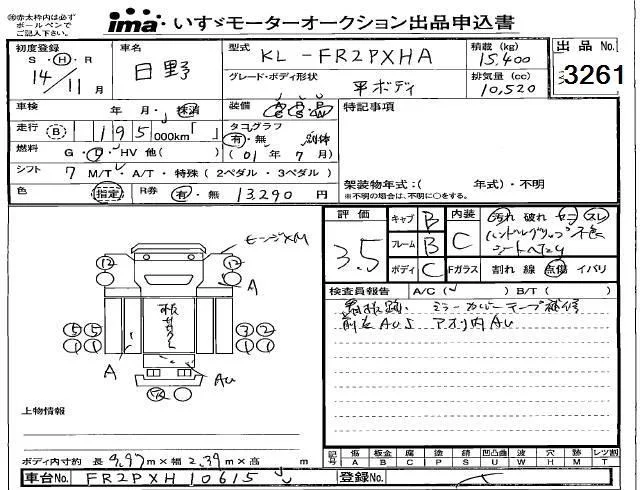 ※赤太枠内は必ず
ボールペンで
ご記入下さい。
ima・いすゞモーターオークション出品申込書
初度登録 S・H・R 14年11月
車名 日野
型式 KL-FR2PXHA
積載(kg) 15,400
出品No. 3261
グレード・ボディ形状 平ボディ
排気量(cc) 10,520
車検 年・月・抹消
装備 A/C P/S P/W
特記事項
走行 B 195,000km「 」
タコグラフ 有・無 別体
(01年7月)
燃料 G・D・HV 他( )
シフト 7 M/T・A/T・特殊(2ペダル・3ペダル)
架装物年式:( 年式)・不明
※不明の場合は、不明に○をする。
色 指定 R券 有・無 13,290円
評価 3.5
キャブ B
フレーム B
ボディ C
内装 C
汚れ 破れ コゲ スレ
ハンドルグリップ不良
シートヘタリ
Fガラス 割れ 線 点傷 イバリ
検査員報告 A/C( ) B/T( )
看板跡. ミラーカバーテープ補修
前左AU5 アオリ内AU
モヒンジXM
12 12
A
5 5 3 2
1 1 1 1
A
AU
上物情報
ボディ内寸約 長9.97m×幅2.39m×高 m
記号 傷A 板金B 腐C 塗P 錆S 凹凸曲U 波W 穴H 外M レンタ割T
車台No. FR2PXH10615
登録No.